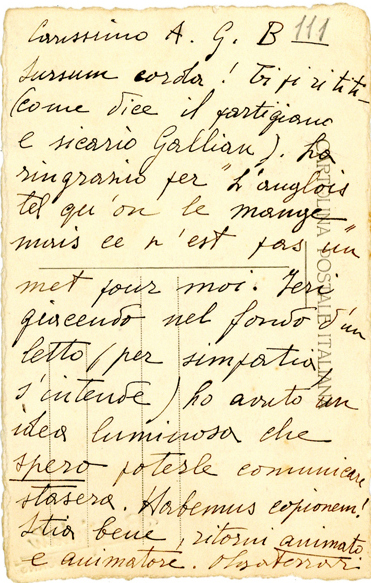 Carissimo A. G. B 111
Sursum corda! Ti fi ri ti ti-
(come dice il partigiano
e sicario Gallian). La
ringrazio per "L'anglois
tel qu'on le mange"
mais ce n'est pas un
met pour moi. Jeri
giacendo nel fondo d'un
letto (per simpatia
s'intende) ho avuto un
idea luminosa che
spero poterle comunicare
stasera. Habemus copionem!
Stia bene, ritorni animato
e animatore.
CARTOLINA POSTALE ITALIANA